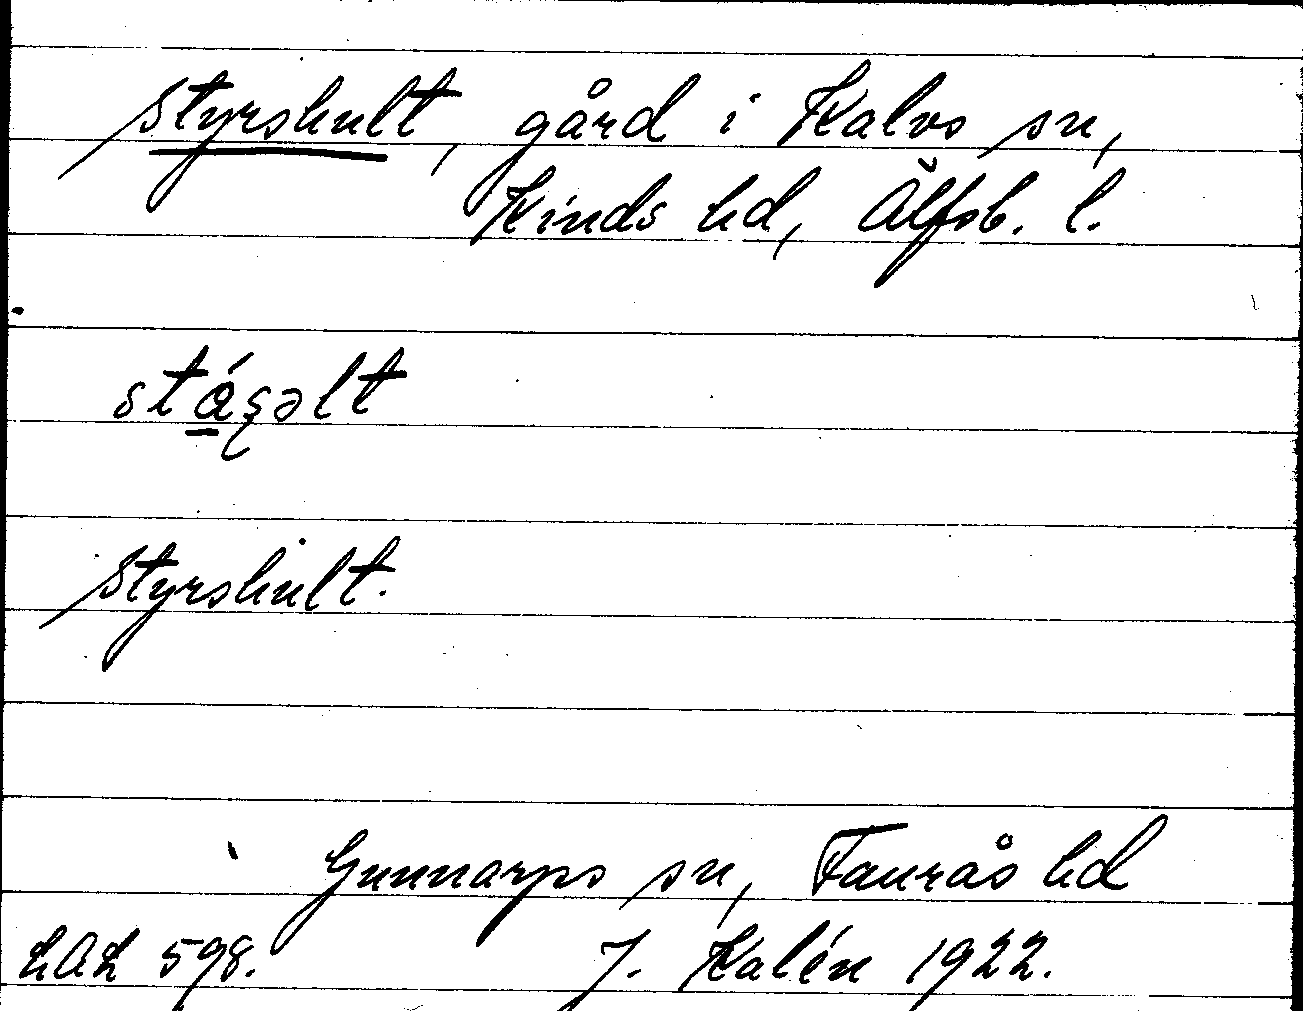 Styrshult, gård i Kalvs sn,
Kinds hd, Älfsb. l.
stáʂəlt
Styrshult.
Gunnarps sn, Faurås hd
LAL 598. J. Kalén 1922.